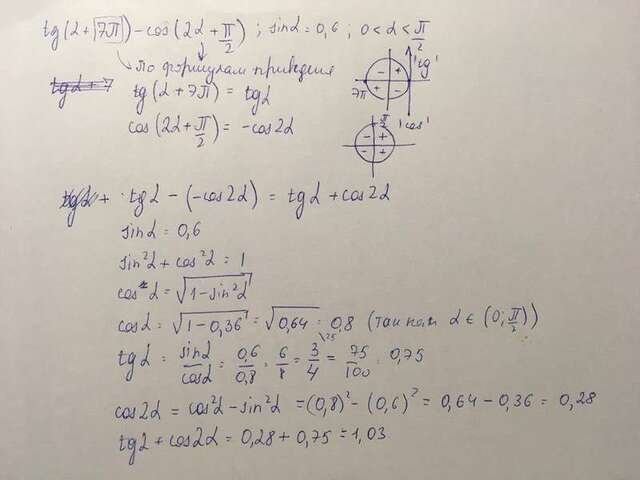 tg(α+7π)-cos(2α+π/2) ; sinα=0,6 ; 0<α<π/2
по формулам приведения
'tg'
tg(α+7π) = tgα
7π
cos(2α+π/2) = -cos2α
'cos'
π/2
tgα-(-cos2α) = tgα+cos2α
sinα = 0,6
sin²α + cos²α = 1
cosα = √1-sin²α
cosα = √1-0,36 = √0,64 = 0,8 (так как α ∈ (0; π/2))
tgα = sinα/cosα = 0,6/0,8 = 6/8 = 3/4 \25 = 75/100 = 0,75
cos2α = cos²α-sin²α = (0,8)² - (0,6)² = 0,64-0,36 = 0,28
tgα + cos2α = 0,28 + 0,75 = 1,03